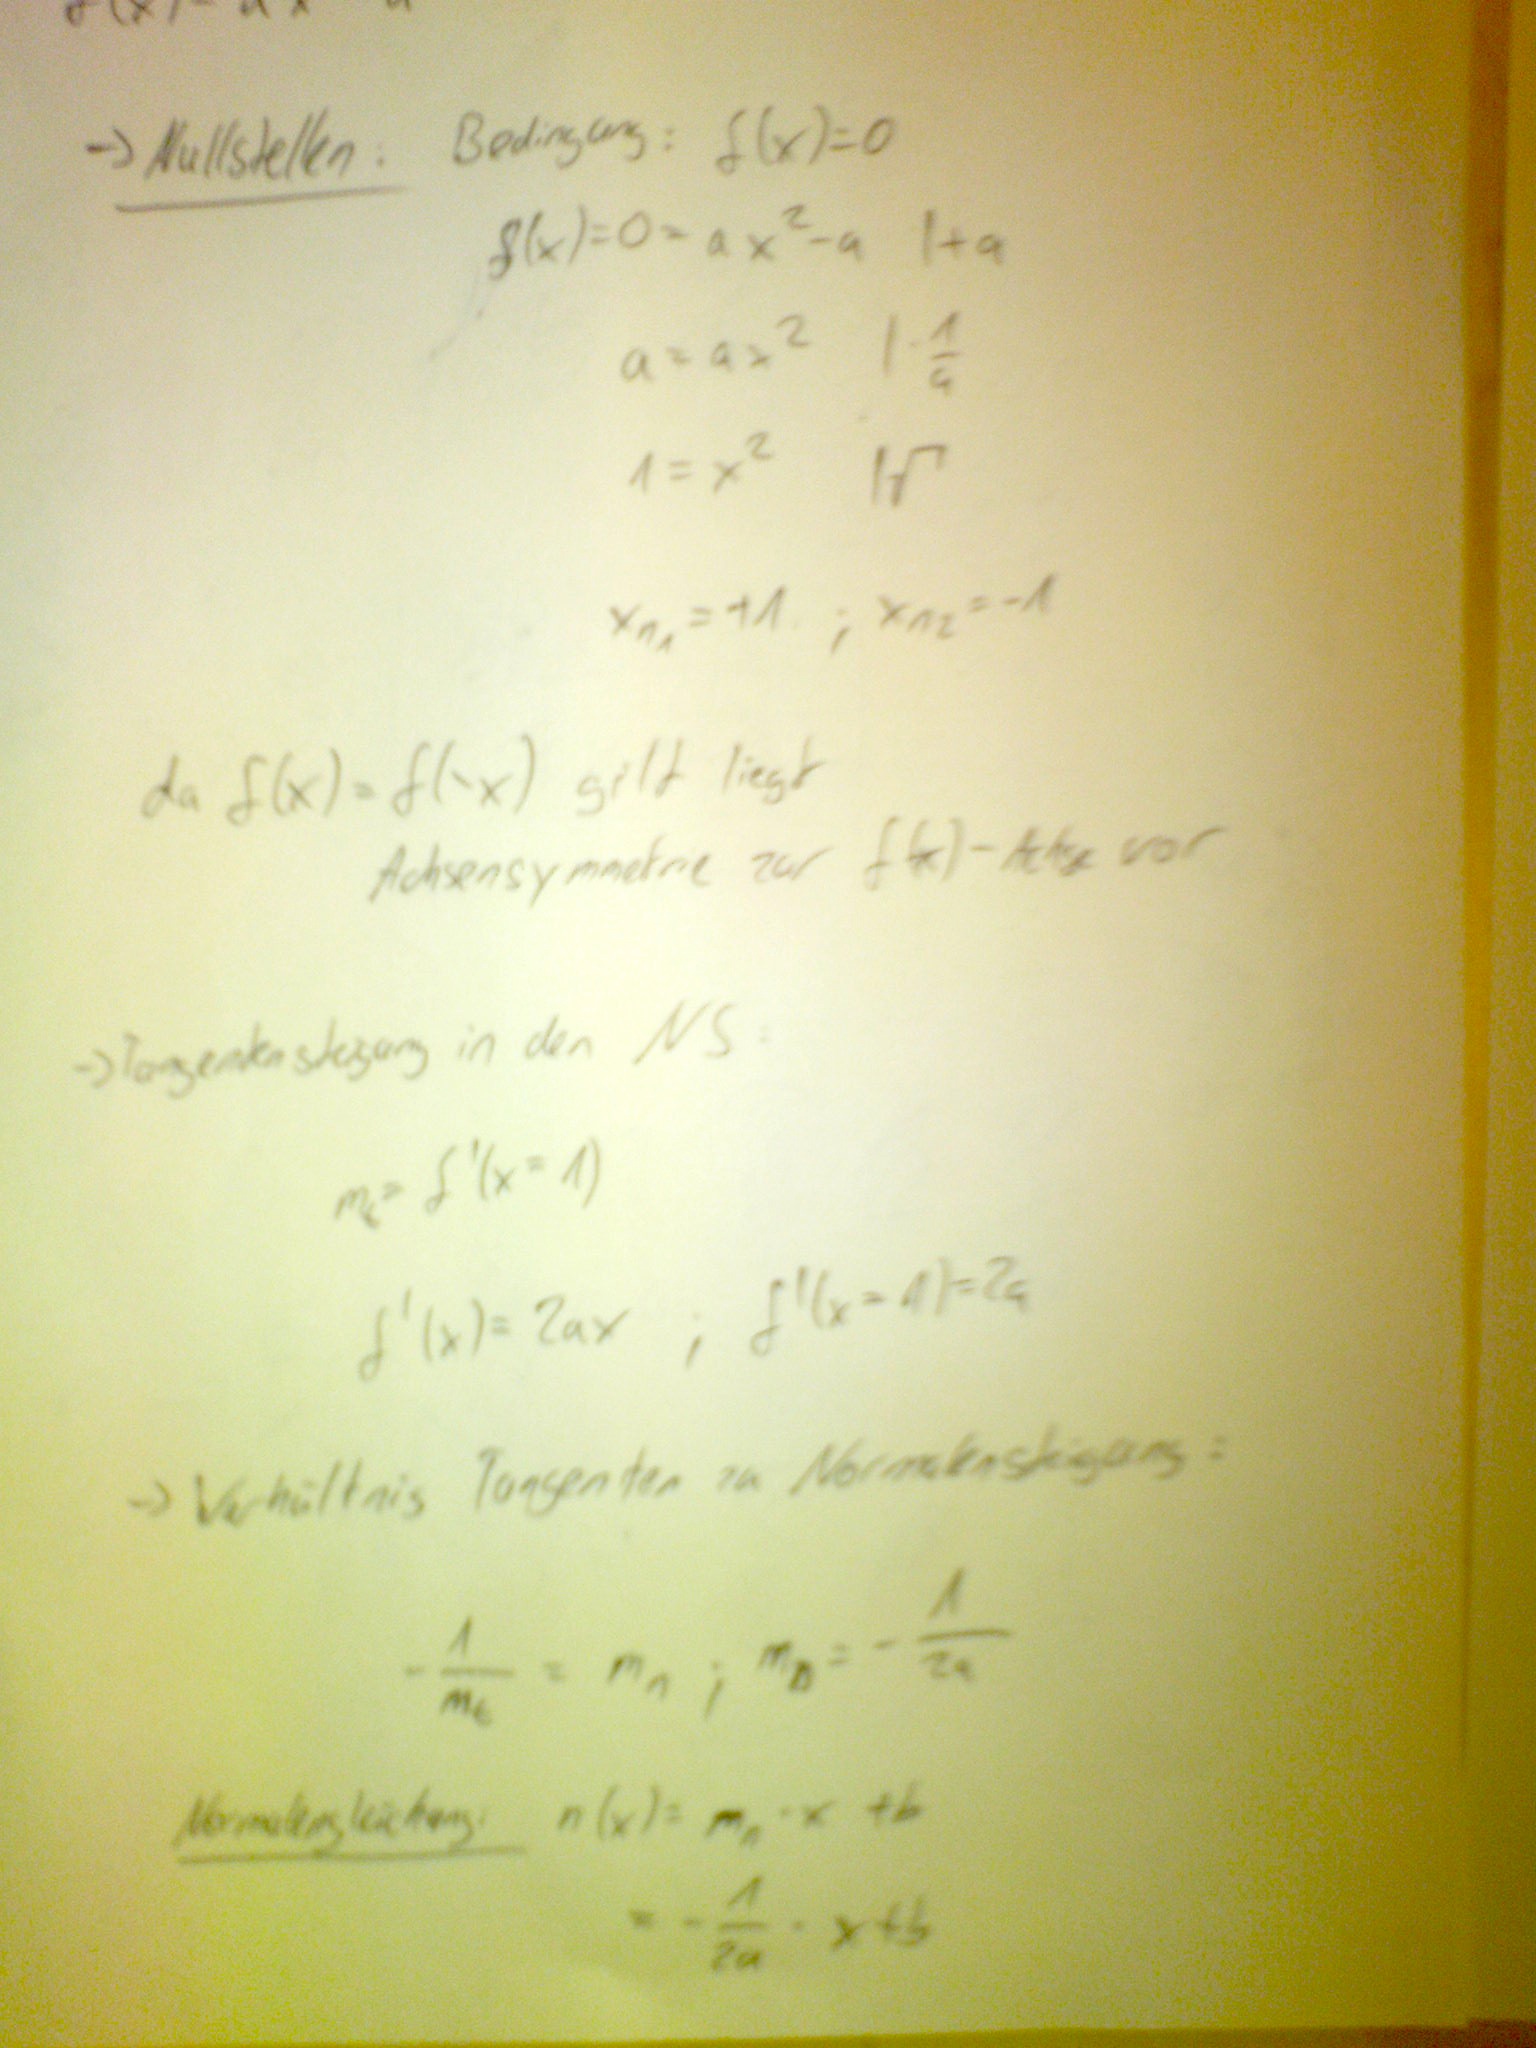 f(x) = ax² - a
→ Nullstellen: Bedingung: f(x)=0
f(x)=0= ax²-a |+a
a = ax² |·1/a
1 = x² |√
xn₁ = +1 ; xn₂ = -1
da f(x) = f(-x) gilt liegt
Achsensymmetrie zur f(x)-Achse vor
→ Tangentensteigung in den NS:
mt = f'(x = 1)
f'(x) = 2ax ; f'(x = 1) = 2a
→ Verhältnis Tangenten zu Normalensteigung:
- 1/mt = mn ; mn = - 1/2a
Normalengleichung: n(x) = mn · x + b
= - 1/2a · x + b